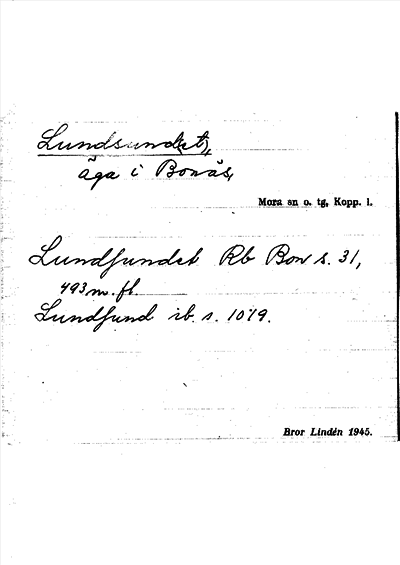 Lundsund(et),
äga i Bonäs,
Mora sn o. tg, Kopp. l.
Lundfundet Rb Bon s. 31,
493 m. fl.
Lundfund ib. s. 1079.
Bror Lindén 1945.